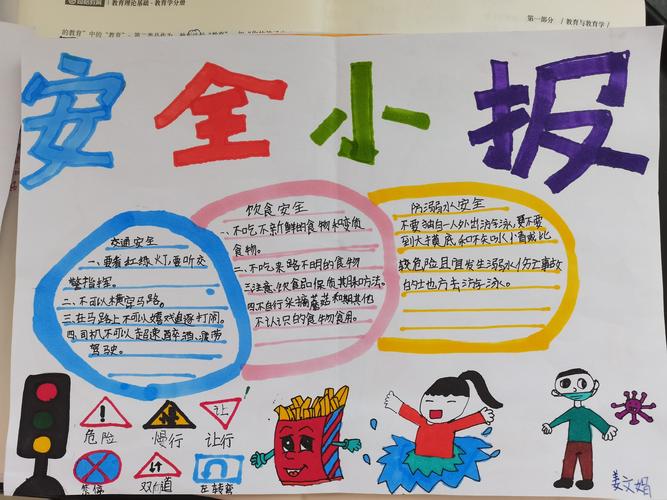 教育理论基础·教育学分册
第一部分 / 教育与教育学
安全小报
交通安全
一、要看红绿灯,要听交
警指挥。
二、不可以横穿马路。
三、在马路上不可以嬉戏追逐打闹。
四、司机不可以超速醉酒、疲劳
驾驶。
饮食安全
一、不吃不新鲜的食物和变质
食物。
二、不吃来路不明的食物
三注意饮食品保质期
四不自行采摘蘑菇和期其他
不认识的食物食用。
防溺水安全
不要独自一人外出游泳,更不要
到
较危险且宜发生溺水伤亡事故
的地方去游泳。
危险
慢行
让
让行
双向道
左转弯
姜文娟